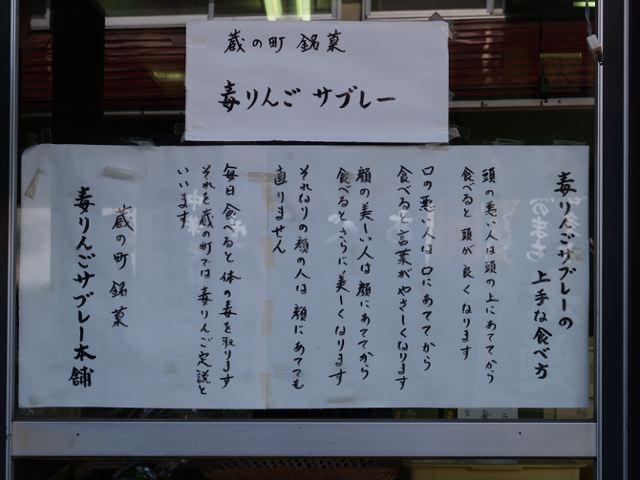 蔵の町 銘菓
毒りんご サブレー
毒りんごサブレーの
上手な食べ方
頭の悪い人は頭の上にあててから
食べると頭が良くなります
口の悪い人は口にあててから
食べると言葉がやさしくなります
顔の美しい人は顔にあててから
食べるとさらに美しくなります
それなりの顔の人は顔にあてても
直りません
毎日食べると体の毒を取ります
それを蔵の町では毒りんご定説と
いいます
蔵の町銘菓
毒りんごサブレー本舗